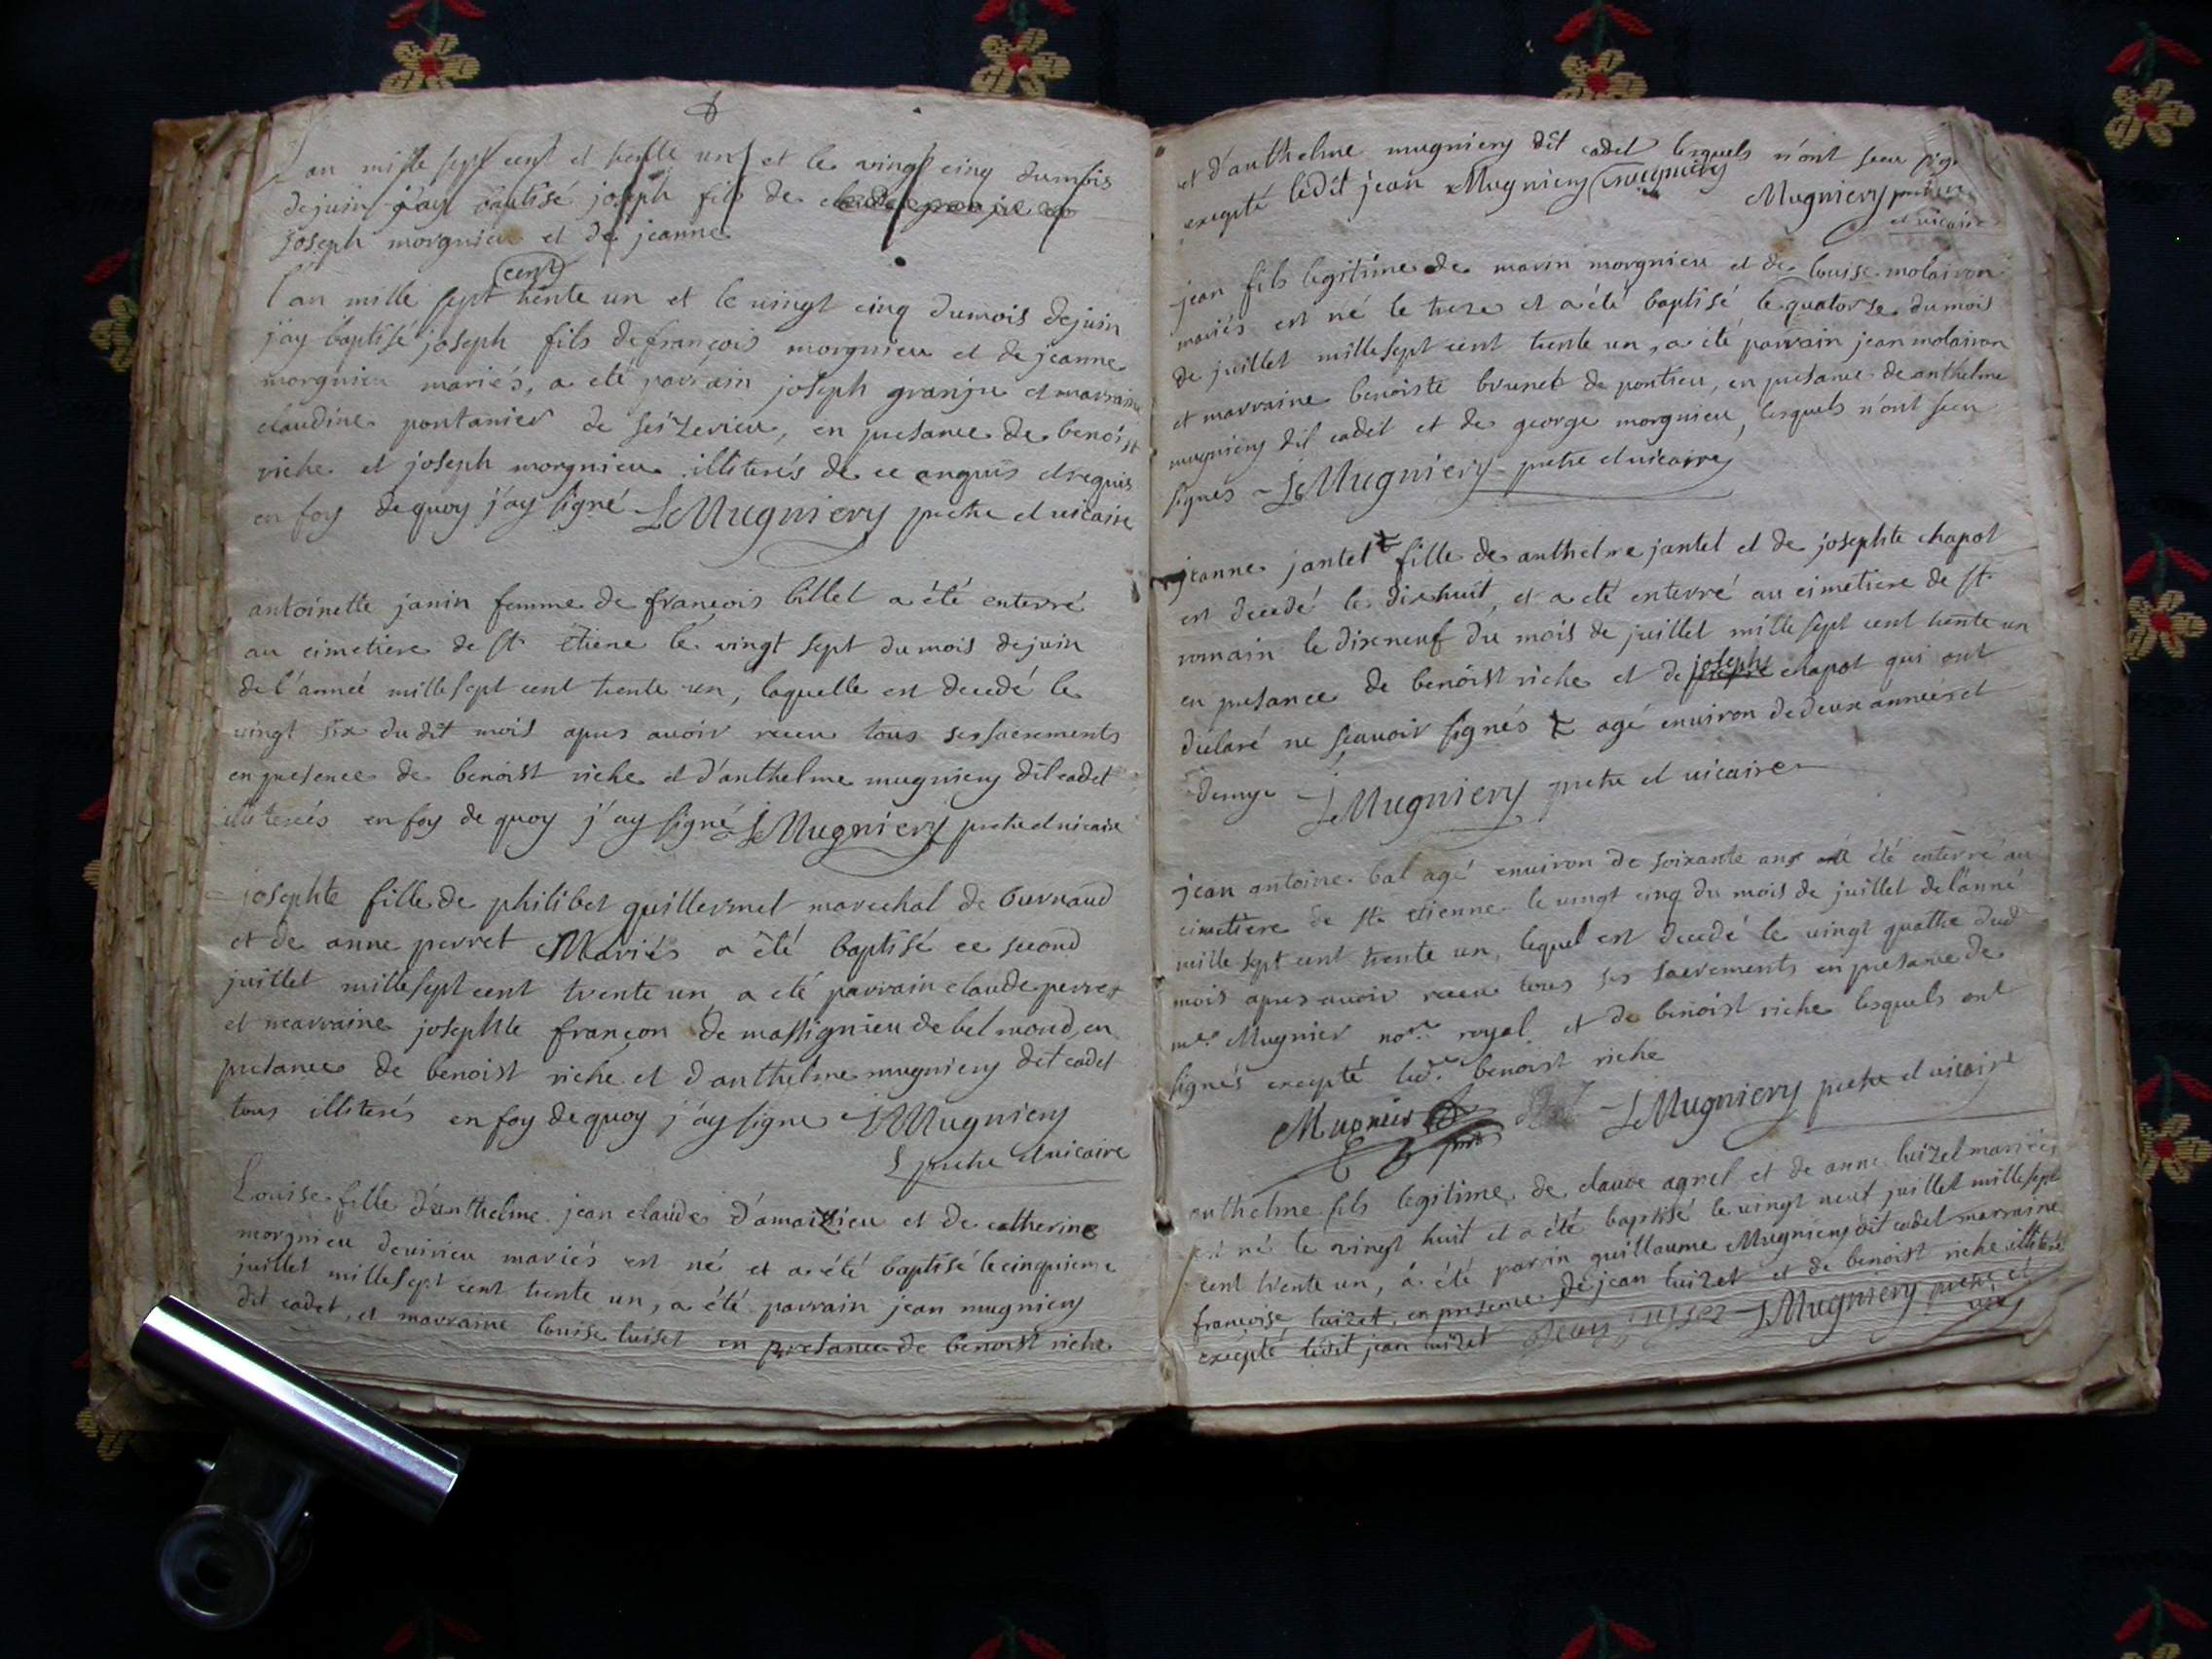 L'an mille sept cent et trente un et le vingt cinq du mois
de juin j'ay baptisé joseph fils de
joseph morgnieu et de jeanne
cent
l'an mille sept trente un et le vingt cinq du mois de juin
j'ay baptisé joseph fils de françois morgnieu et de jeanne
morgnieu mariés, a été parrain joseph granju et marraine
claudine pontanier de seizerieu, en presance de benoist
riche et joseph morgnieu illiterés de ce enquis et requis
en foy de quoy j'ay signé Mugniery pretre et vicaire
antoinette janin femme de françois billet a été enterré
au cimetiere de st. étiene le vingt sept du mois de juin
de l'anneé mille sept cent trente un, laquelle est decedé le
vingt six du dit mois apres avoir receu tous ses sacrements
en presence de benoist riche et d'anthelme mugniery dit cadet
illiterés en foy de quoy j'ay signé Mugniery pretre et vicaire
josephte fille de philibet guillermet marechal de
et de anne perret Mariés a été baptisé ce second
juillet mille sept cent trente un a été parrain claude perret
et marraine josephte françon de massignieu de belmond, en
presance de benoist riche et d'anthelme mugniery dit cadet
tous illiterés en foy de quoy j'ay signe Mugniery
pretre et vicaire
Louise fille d'anthelme jean claude d'amaizieu et de catherine
morgnieu de virieu mariés est né et a été baptisé le cinquieme
juillet mille sept cent trente un, a été parrain jean mugniery
dit cadet, et marraine louise luiset en presance de benoist riche
et d'anthelme mugniery dit cadet lesquels n'ont sceu
excepté ledit jean Mugniery mugniery
Mugniery pretre
et vicaire
jean fils legitime de marin morgnieu et de louise molairon
mariés est né le treze et a été baptisé le quatorse du mois
de juillet mille sept cent trente un, a été parrain jean molairon
et marraine benoiste brunet de pontieu, en presance de anthelme
mugniery dit cadet et de george morgnieu, lesquels n'ont sceu
signés Mugniery pretre et vicaire
jeanne jantet fille de anthelme jantet et de josephte chapot
est decedé le dix huit, et a été enterré au cimetiere de st.
romain le dix neuf du mois de juillet mille sept cent trente un
en presance de benoist riche et de joseph chapot qui ont
déclaré ne sçauoir signés agé environ de deux années et
demye Mugniery pretre et vicaire
jean antoine bal agé environ de soixante ans a été enterré au
cimetiere de st. etienne le vingt cinq du mois de juillet de l'anné
mille sept cent trente un, lequel est decedé le vingt quatre dud
mois apres avoir receu tous ses sacrements en presance de
me. Mugnier nore. royal et de benoist riche lesquels ont
signés excepté led. benoist riche
Mugnier Mugniery pretre et vicaire
anthelme fils legitime de claude agrel et de anne luizet mariés
est né le vingt huit et a été baptisé le vingt neuf juillet mille sept
cent trente un, a été parrin guillaume Mugniery dit cadet marraine
francoise luizet, en presence de jean luizet et de benoist riche illiteré
excepté ledit jean luizet Mugniery pretre et
vic